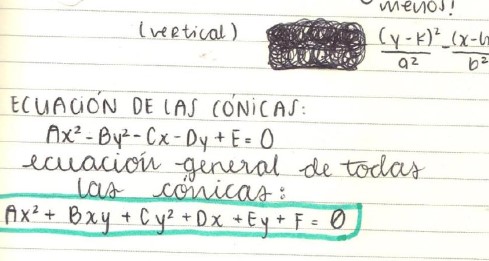 menos!
(vertical)
(y-k)²/a² - (x-h
b²
ECUACIÓN DE LAS CÓNICAS:
Ax² - By² - Cx - Dy + E = 0
ecuación general de todas
las cónicas:
Ax² + Bxy + Cy² + Dx + Ey + F = 0